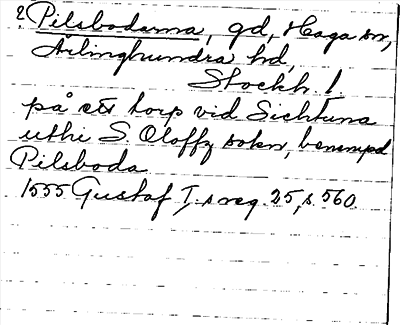 ? Pilsboderna, gd, Haga sn,
Ärlinghundra hd,
Stockh. l.
på ett torp vid Sichtuna
uthi S. Oloffz sokn, benempd
Pilsboda
1555 Gustaf I:s reg. 25, s. 560.